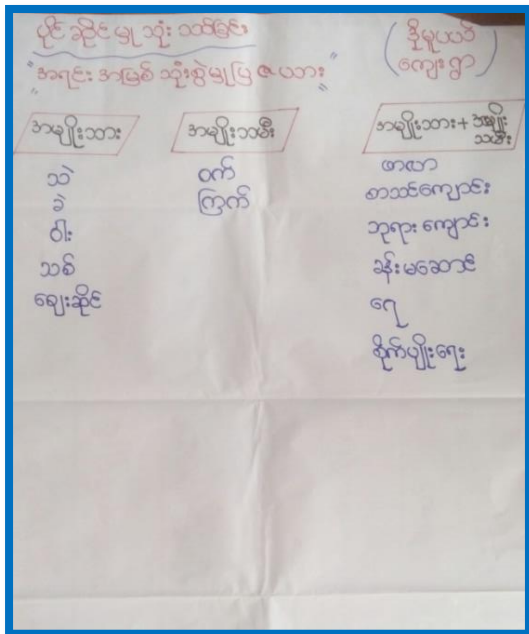 ပိုင်ဆိုင်မှု သုံးသပ်ခြင်း
(ဒိုမူယဒ်
ကျေးရွာ)
"အရင်းအမြစ် သုံးစွဲမှုပြ ဇယား"
အမျိုးသား
အမျိုးသမီး
အမျိုးသား + အမျိုးသမီး
သဲ
ဝက်
ဖာလာ
ခဲ
ကြက်
စာသင်ကျောင်း
ဝါး
ဘုရားကျောင်း
သစ်
ခန်းမဆောင်
ဈေးဆိုင်
ရေ
စိုက်ပျိုးရေး